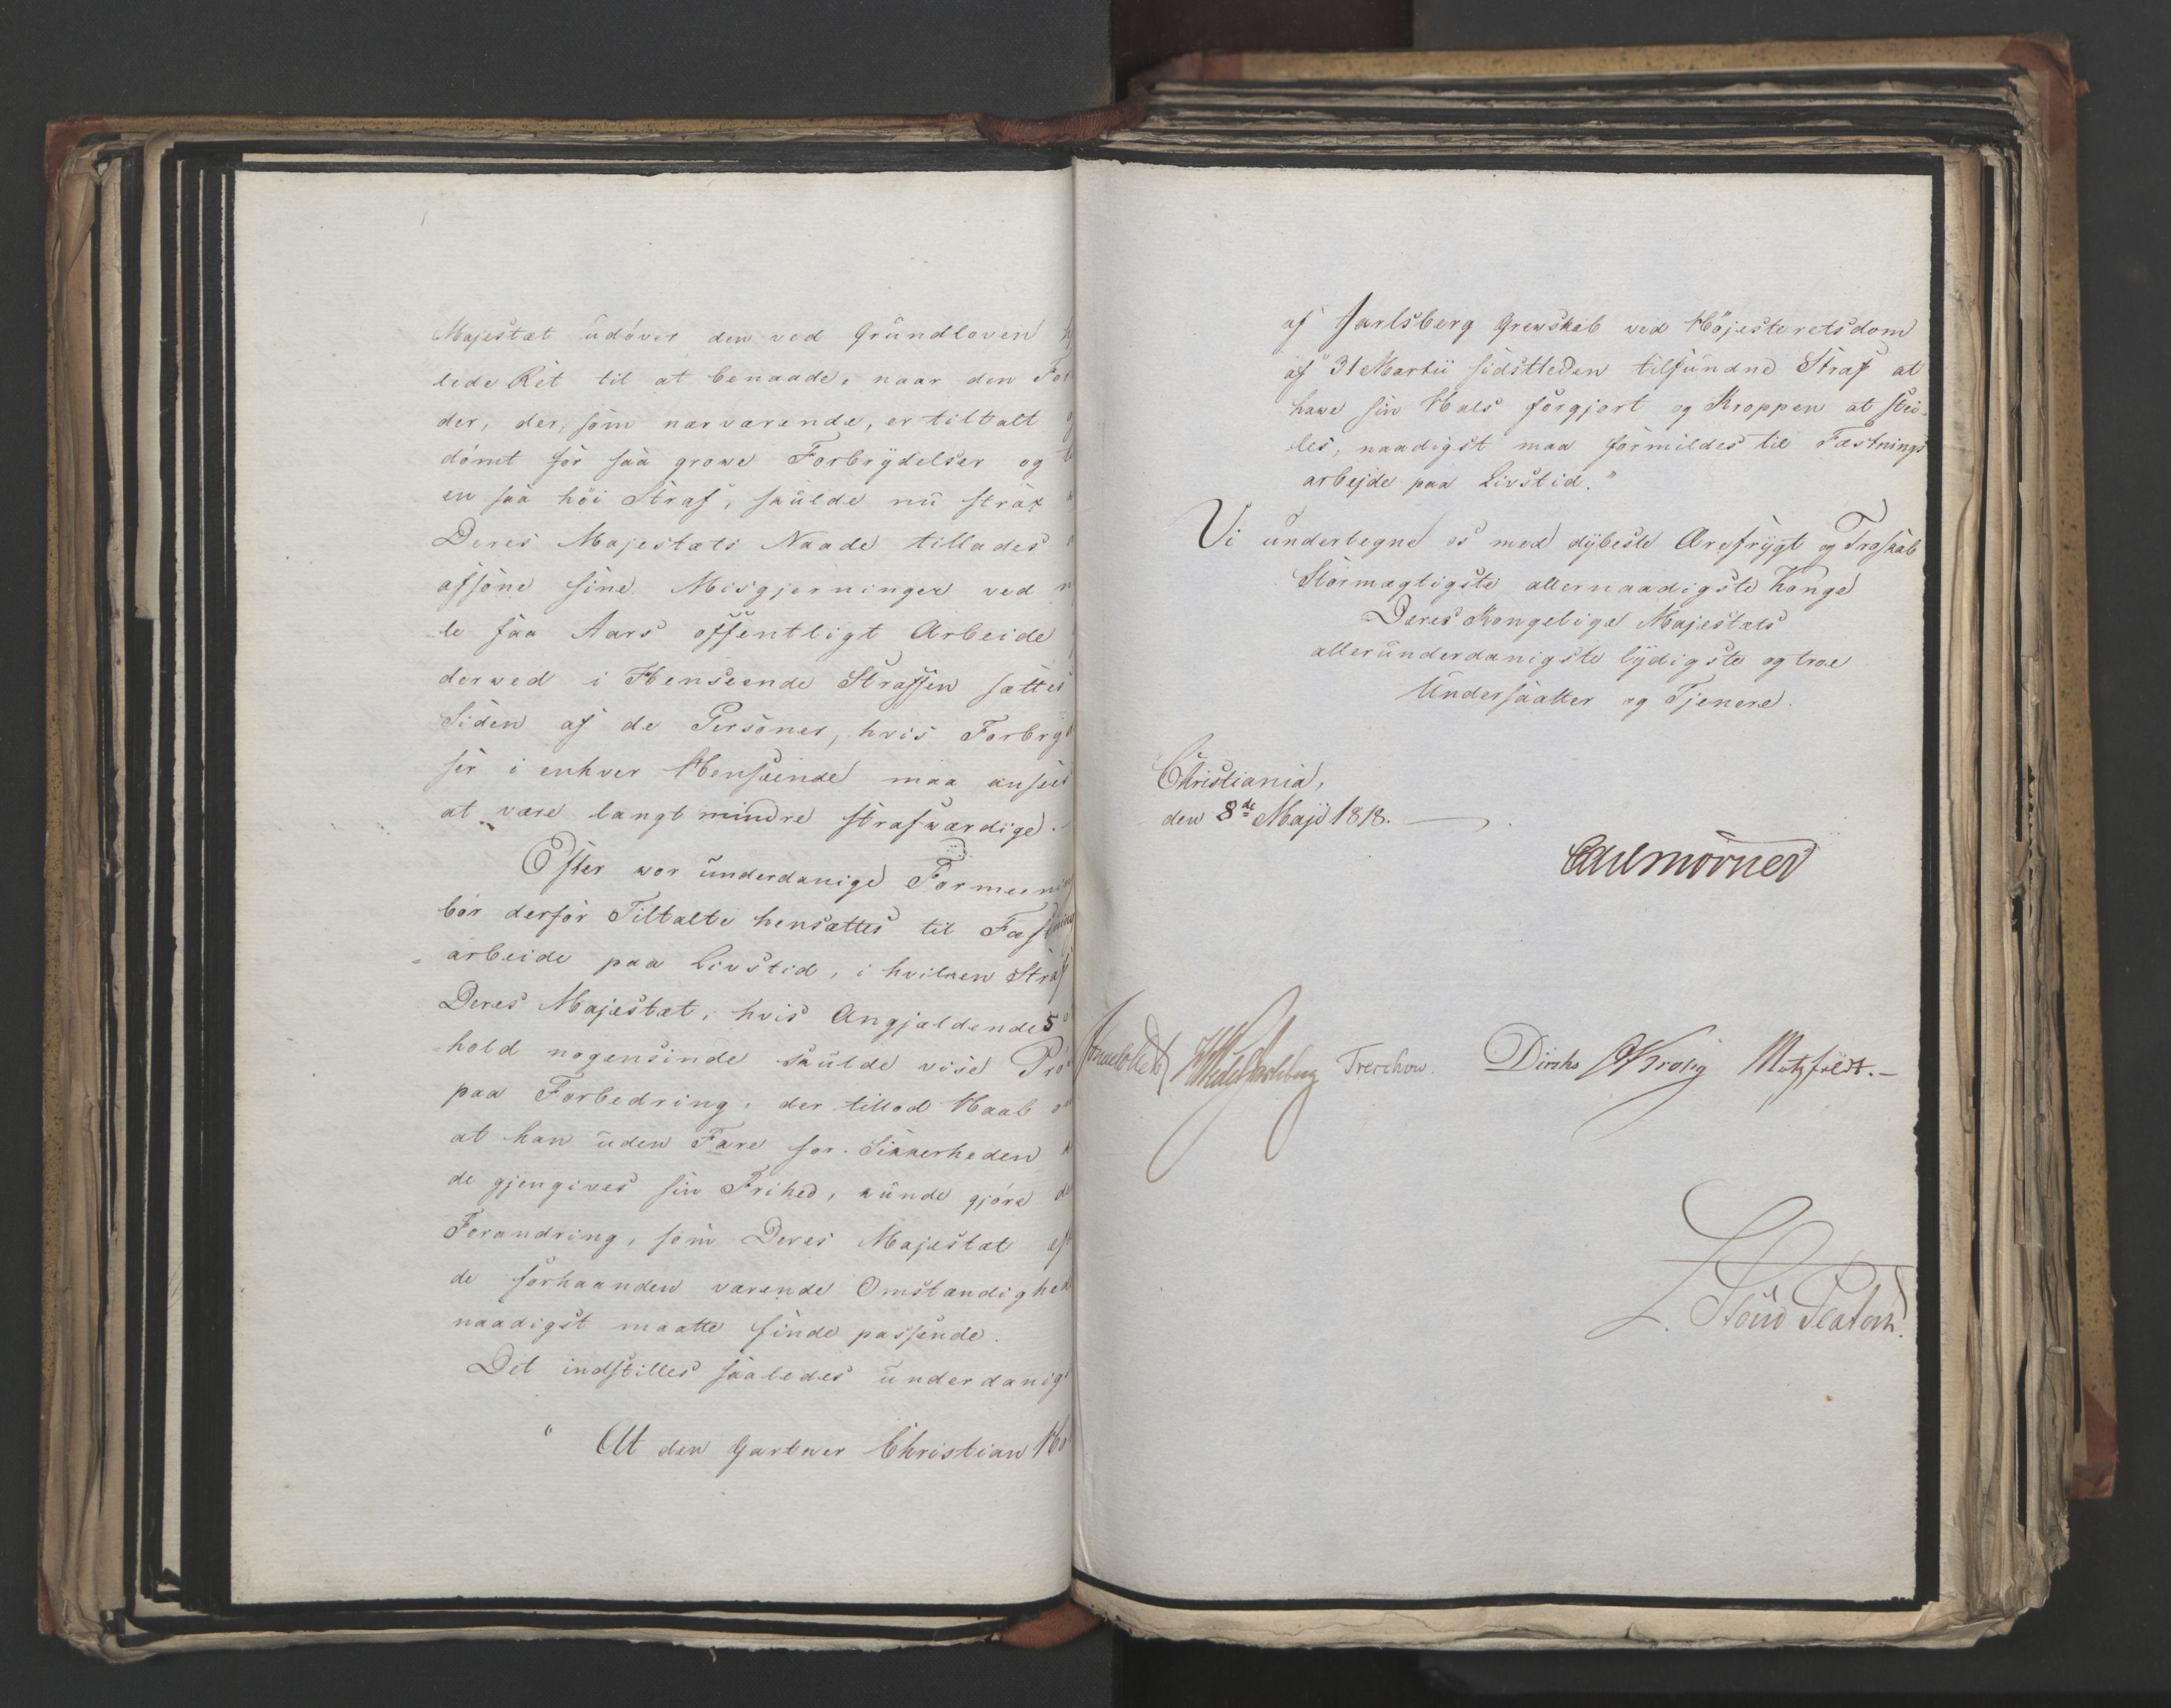 Majestæt udøver den ved Grundloven
lede Ret til at benaade, naar den For
der, der, som nærværende, er tiltalt
dømt for saa grove Forbrydelser og
en saa høi Straf, skulde nu strax
Deres Majestæts Naade tillades
afsone sine Misgjerninger ved
le faa Aars offentligt Arbeide
derved i Henseende Straffen sættes
Siden af de Personer, hvis Forbry
ser i enhver Henseende maa ansees
at være langt mindre strafværdige.
Efter vor underdanige Formeening
bør derfor Tiltalte hensættes til Fæstnings
arbeide paa Livstid, i hvilken Straf
Deres Majestæt, hvis Angjældendes
hold nogensinde skulde vise Prø
paa Forbedring, der tillod Haab
at han uden Fare for Sikkerheden
de gjengives sin Frihed, kunde gjøre
Forandring, som Deres Majestæt
de forhaanden værende Omstændighed
naadigst maatte finde passende.
Det indstilles saaledes underdanigst
" At den Gartner Christian
af Jarlsberg Grevskab ved Høiesteretsdom
af 31 Martii sidstleden tilfundne Straf at
have sin Hals forgjort og Kroppen at stei-
les, naadigst maa formildes til Fæstnings
arbejde paa Livstid."
Vi underlegne os med dybeste Ærefrygt og Troskab
Stormægtigste allernaadigste Konge
Deres Kongelige Majestæts
allerunderdanigste lydigste og troe
Undersaatter og Tjenere.
Christiania,
den 8de Maji 1818.
Carl Mörner
Sommerhielm HWedelJarlsberg Treschow. Diriks Krohg Motzfeldt.-
L. Stoud Platou.